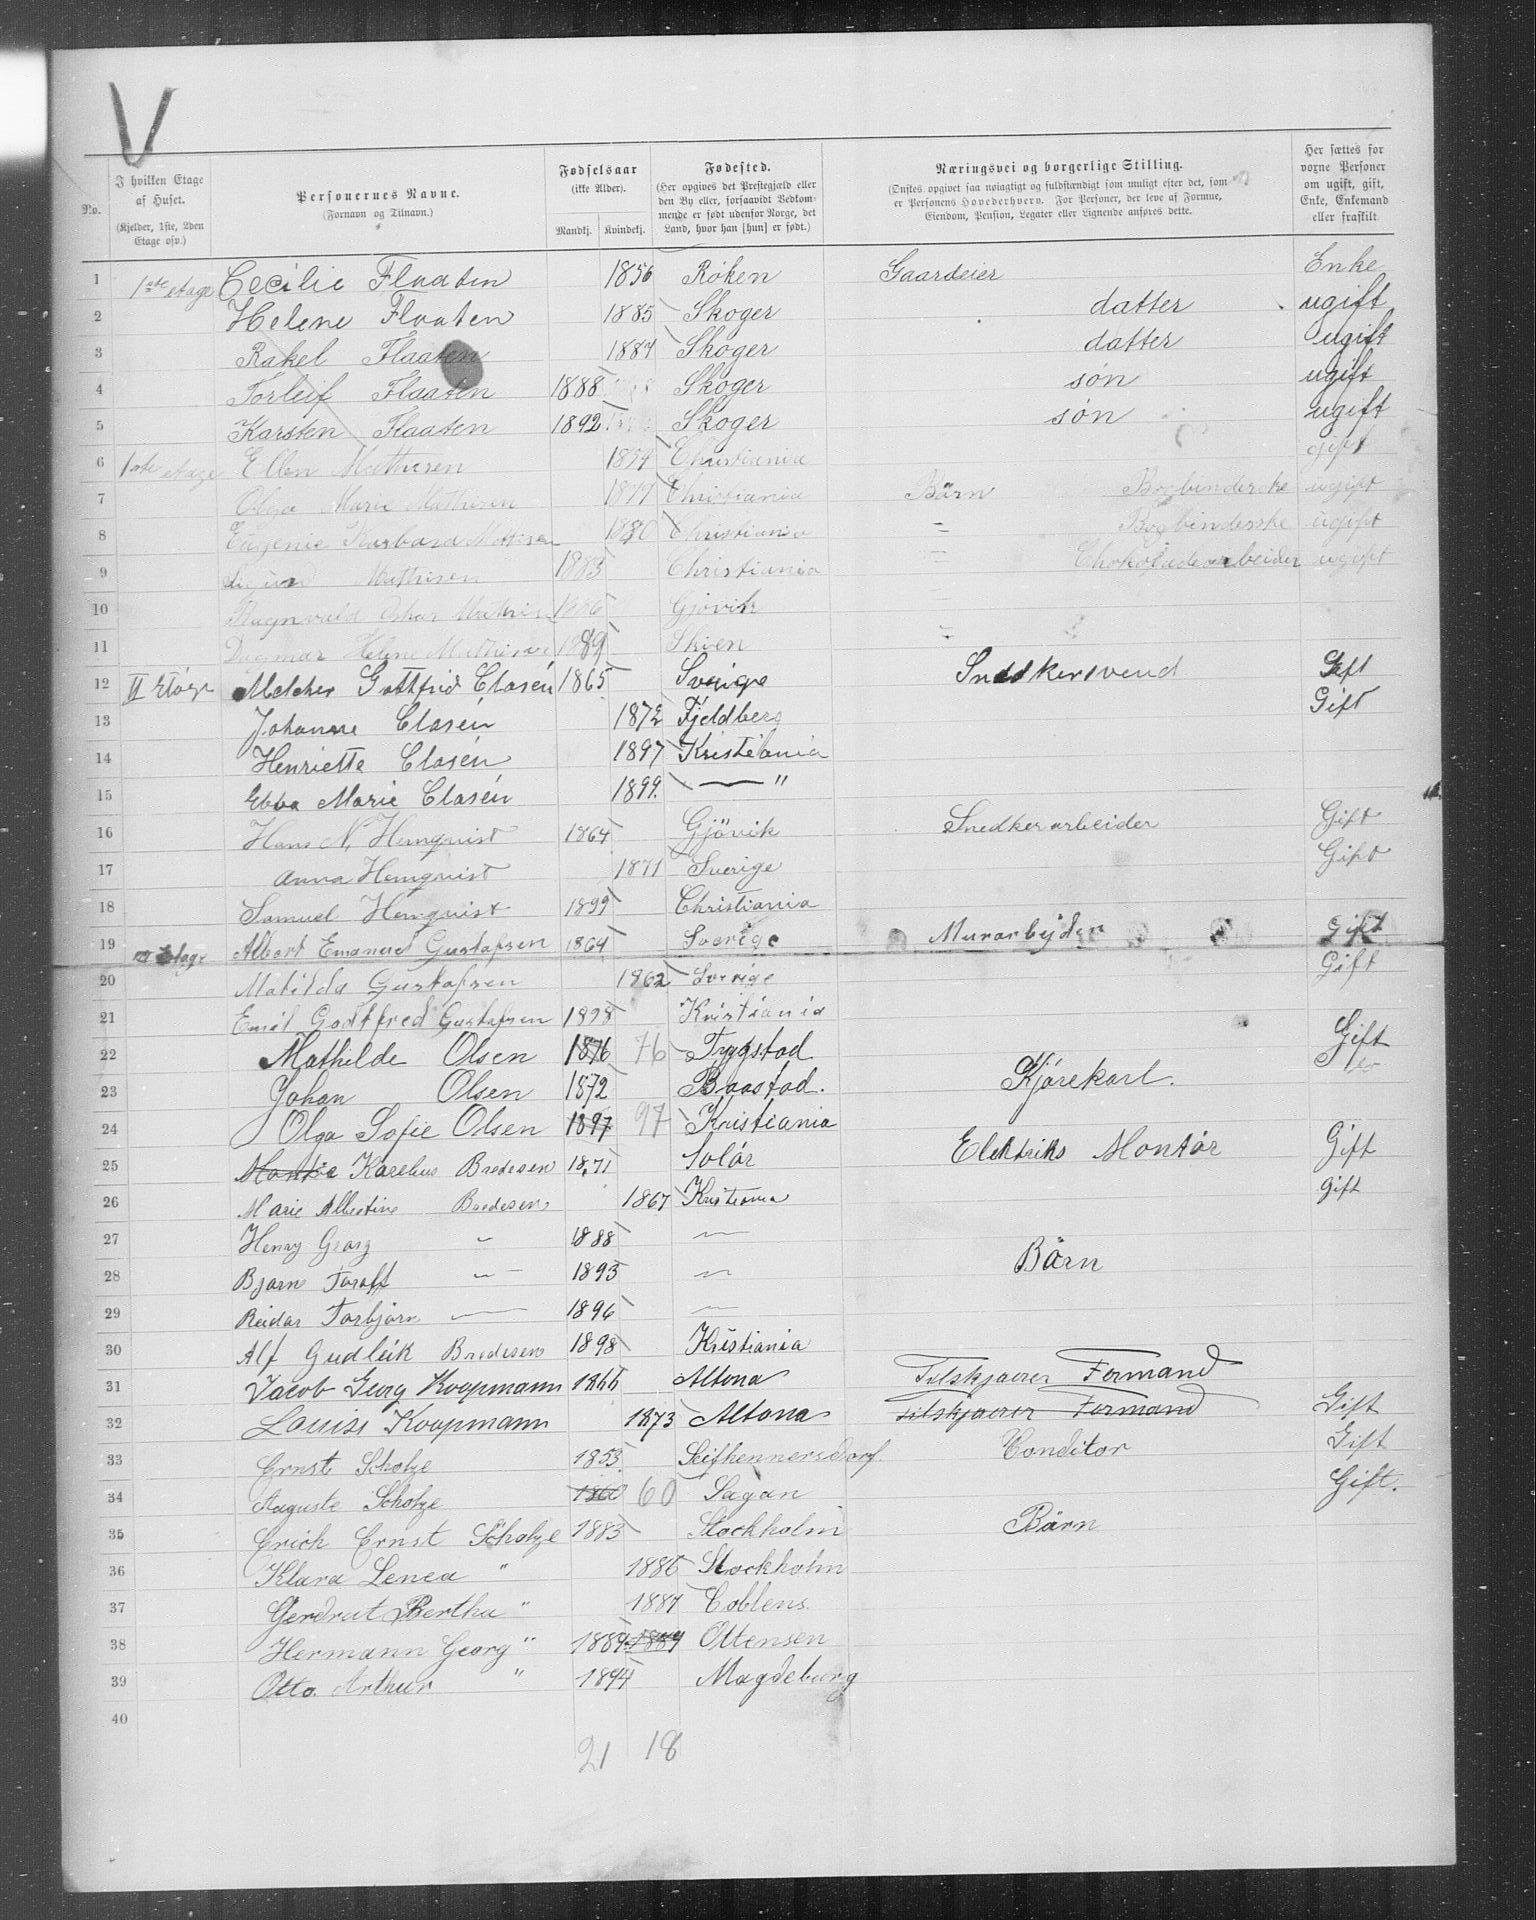 V
No.
I hvilken Etage af Huset.
(Kjelder, 1ste, 2den Etage osv.)
Personernes Navne.
(Fornavn og Tilnavn.)
Fødselsaar
(ikke Alder).
Mandkj. Kvindekj.
Fødested.
(Her opgives det Prestegjæld eller den By eller, forsaavidt Vedkommende er født udenfor Norge, det Land, hvor han [hun] er født.)
Næringsvei og borgerlige Stilling.
(Ønskes opgivet saa nøiagtigt og fuldstændigt som muligt efter det, som er Personens Hovederhverv. For Personer, der leve af Formue, Eiendom, Pension, Legater eller Lignende anføres dette.
Her sættes for vorne Personer om ugift, gift, Enke, Enkemand eller fraskilt
1 1ste etage Cecilie Flaaten 1856 Røken Gaardeier Enke
2 Helene Flaaten 1885 Skoger datter ugift
3 Rakel Flaaten 1887 Skoger datter ugift
4 Torleif Flaaten 1888 Skoger søn ugift
5 Karsten Flaaten 1892 Skoger søn ugift
6 1ste etage Ellen Mathisen 1854 Christiania gift
7 Olga Marie Mathisen 1877 Christiania Börn Bogbinderske ugift
8 Eugenie Mathisen 1880 Christiania = Bogbinderske ugift
9 Sigurd Mathisen 1883 Christiania = Chokoladearbeider ugift
10 Ragnvald Oskar Mathisen 1886 Gjøvik
11 Dagmar Helene Mathisen 1889 Skien
12 II Etage Melcher Gottfrid Clasén 1865 Sverige Snedkersvend Gift
13 Johanne Clasén 1872 Fjeldberg Gift
14 Henriette Clasén 1897 Kristiania
15 Ebba Marie Clasén 1899. — "
16 Hans N. Hemqvist 1864 Gjövik Snedkerarbeider Gift
17 Anna Hemqvist 1871 Sverige Gift
18 Samuel Hemqvist 1899 Christiania
19 Etage Albert Emanuel Gustafsen 1864 Sverige Murarbejden Gift
20 Matilda Gustafsen 1862 Sverige Gift
21 Emil Godtfred Gustafsen 1898 Kristiania
22 Mathilde Olsen 1876 76 Trygstad Gift
23 Johan Olsen 1872 Baastad. Kjørekarl.
24 Olga Sofie Olsen 1897 97 Kristiania
25 Karelius Bredesen 1871 Solør Elektriks Montør Gift
26 Marie Albertine Bredesen 1867 Kristiania gift
27 Henry Georg — 1888 —
28 Bjarn — 1893 — Börn
29 Reidar Torbjørn — 1896 —
30 Alf Gudleik Bredesen 1898 Kristiania
31 Jacob Georg Koopmann 1866 Altona Tilskjaerer Formand
32 Louise Koopmann 1873 Altona Tilskjaerer Formand Gift
33 Ernst Scholze 1853 Seifhennersdorf. Conditor Gift
34 Auguste Scholze 1860 60 Sagan Gift.
35 Erich Ernst Scholze 1883 Stockholm Bärn
36 Klara Lenea " 1886 Stockholm
37 Gerdrut Bertha " 1887 Coblens.
38 Hermann Georg " 1889 1889 Ottensen
39 Otto Arthur " 1894 Magdeburg
40
21 18